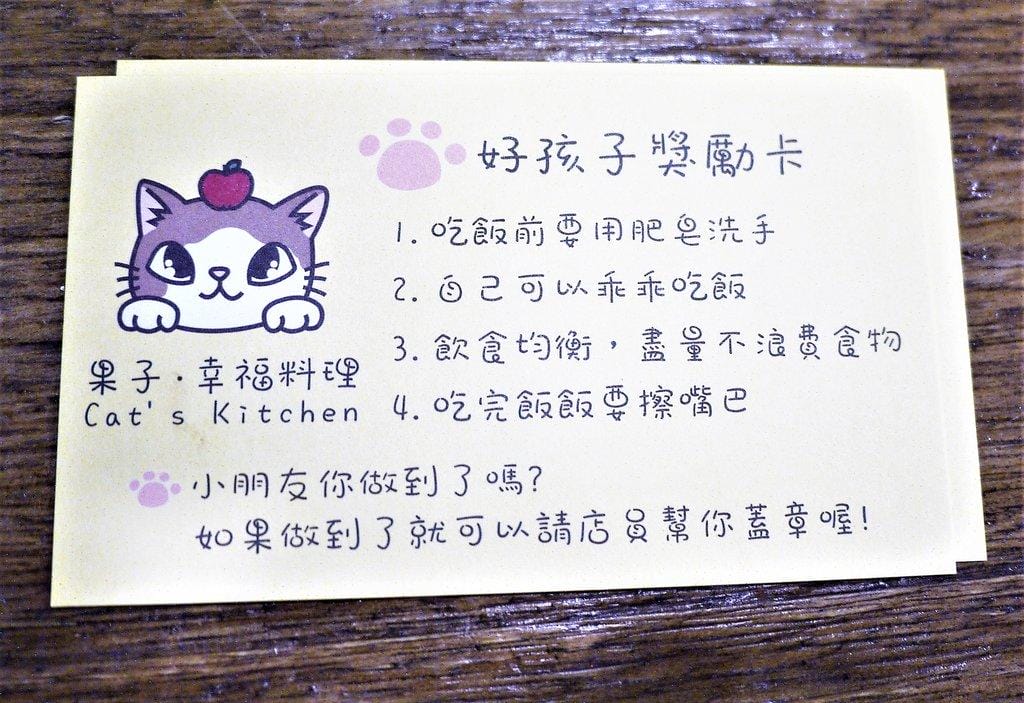 好孩子獎勵卡
1. 吃飯前要用肥皂洗手
2. 自己可以乖乖吃飯
3. 飲食均衡，盡量不浪費食物
4. 吃完飯飯要擦嘴巴
果子·幸福料理
Cat's Kitchen
小朋友你做到了嗎?
如果做到了就可以請店員幫你蓋章喔!